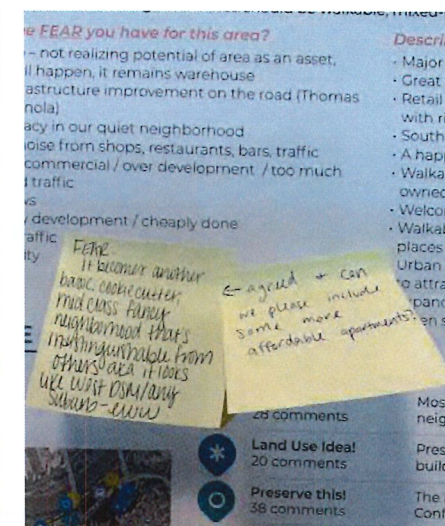 should be walkable, mixed-
e FEAR you have for this area?
– not realizing potential of area as an asset,
ll happen, it remains warehouse
astructure improvement on the road (Thomas
nola)
acy in our quiet neighborhood
oise from shops, restaurants, bars, traffic
commercial / over development / too much
d traffic
vs
y development / cheaply done
affic
ity
Descri
· Major
· Great
· Retail
with ri
· South
· A happ
· Walka
owned
· Welco
· Walkal
places
Urban
to attra
xpand
en s
FEAR
It becomes another
basic, cookie cutter,
mid class fancy
neighborhood that's
indistinguishable from
others aka it looks
like West DSM/any
Suburb - eww
← agreed + can
we please include
some more
affordable apartments?
E
28 comments
Land Use Idea!
20 comments
Preserve this!
38 comments
Mos
neig
Pres
build
The
Cont